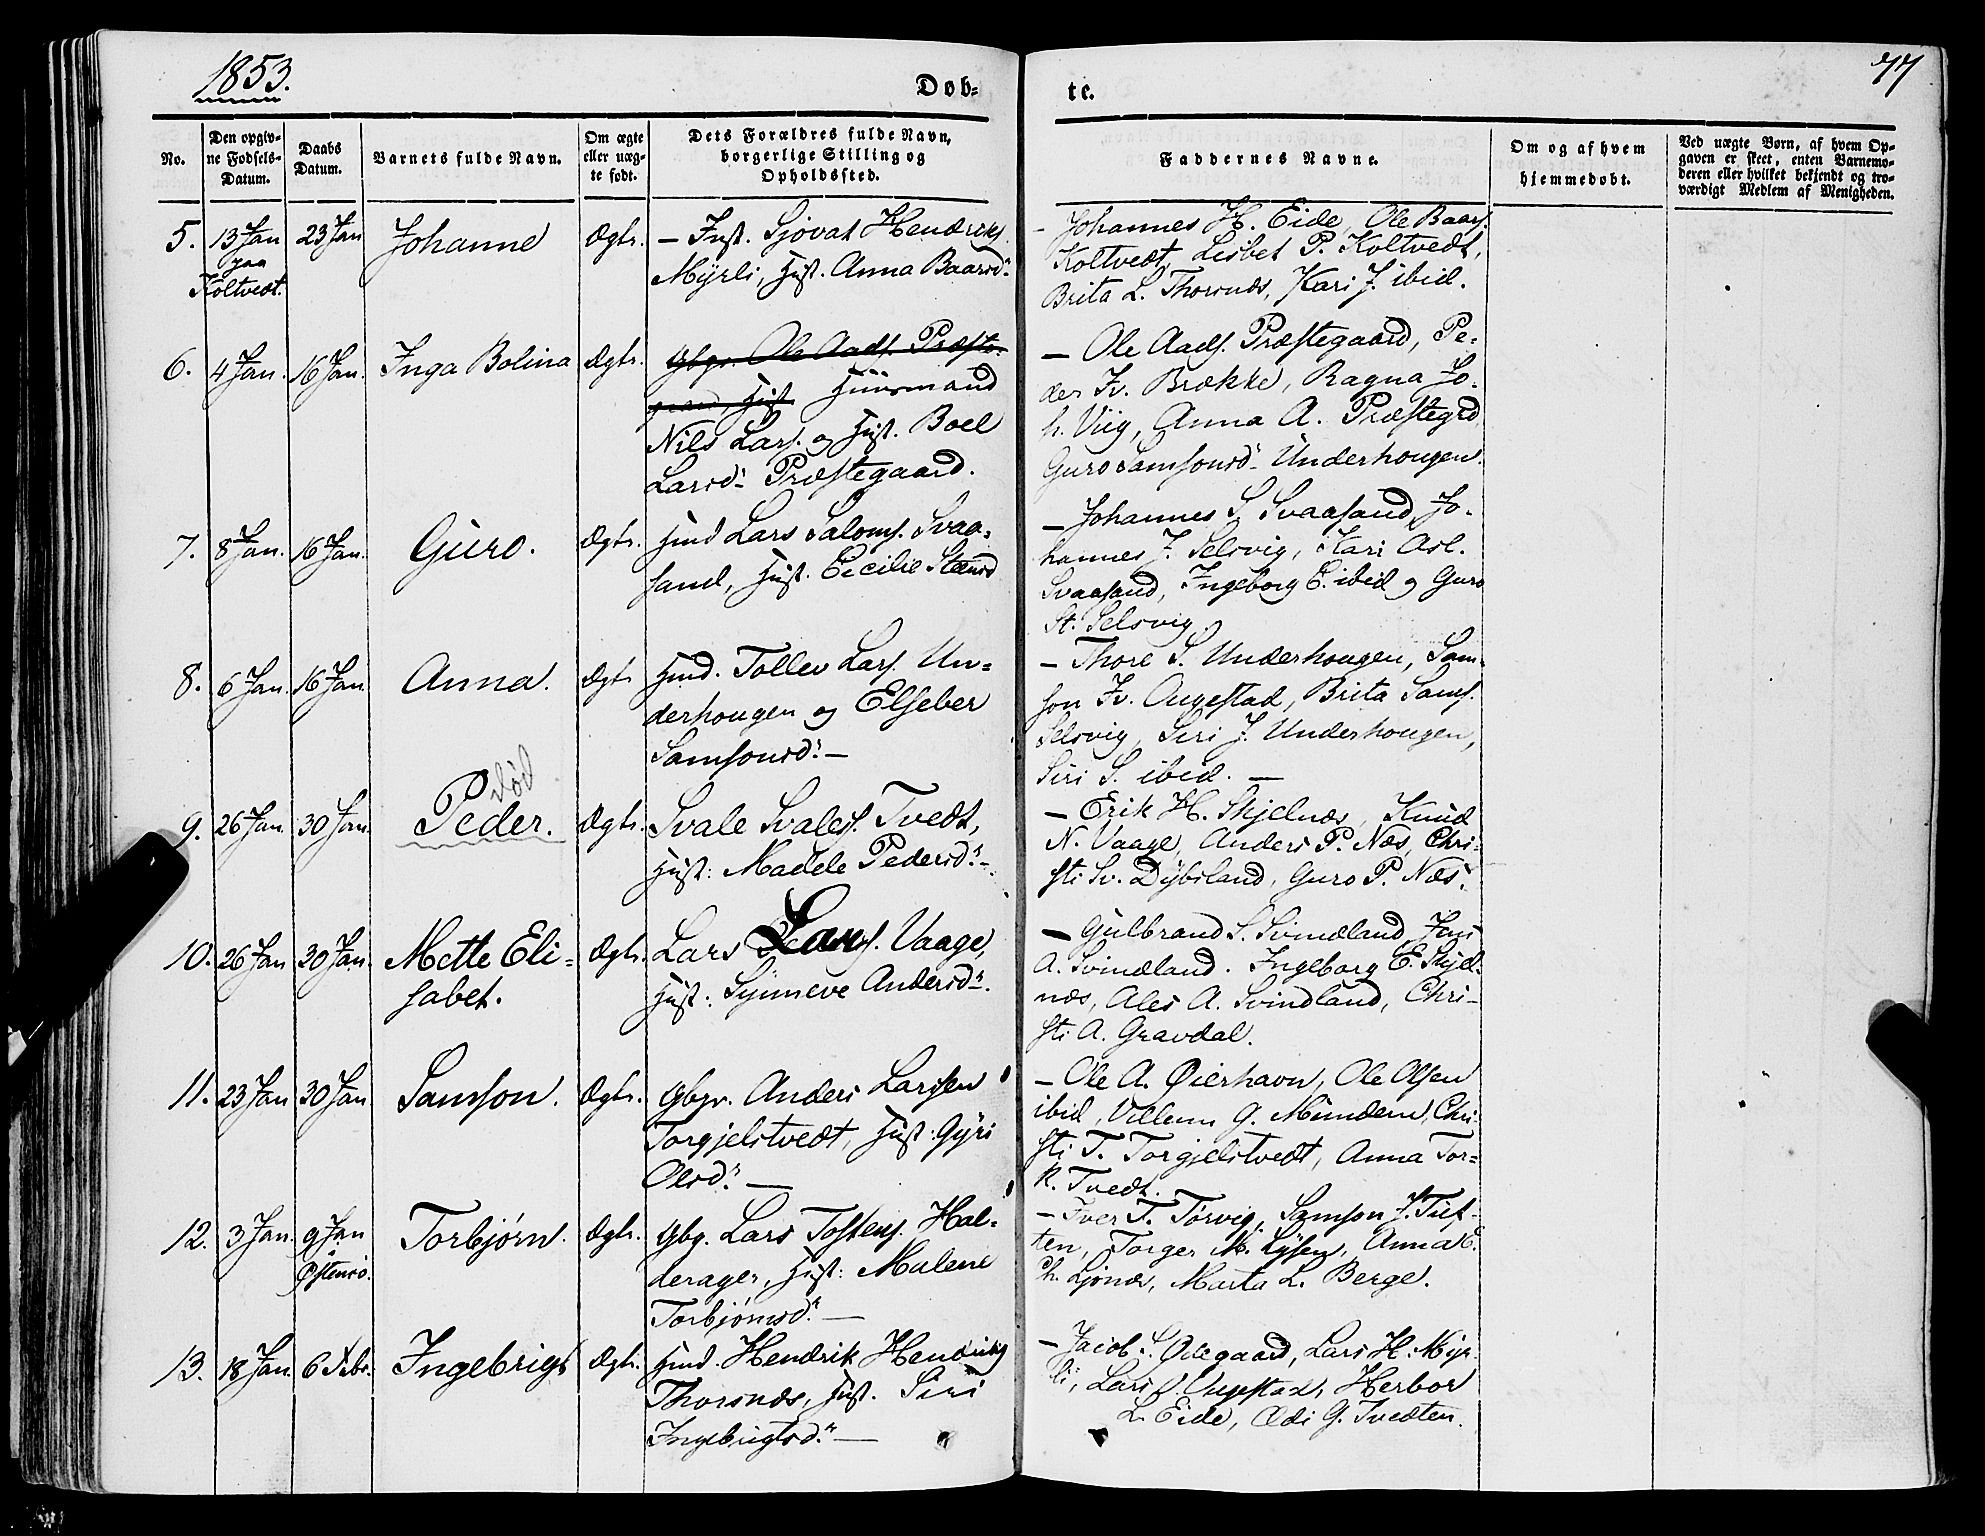 1853.
Døb-
te.
77
No.
Den opgiv-
ne Fødsels-
Datum.
Daabs
Datum.
Barnets fulde Navn.
Om ægte
eller uæg-
te født.
Dets Forældres fulde Navn,
borgerlige Stilling og
Opholdssted.
Faddernes Navne.
Om og af hvem
hjemmedøbt.
Ved uægte Børn, af hvem Op-
gaven er skeet, enten Barnemo-
deren eller hvilket bekjendt og tro-
værdigt Medlem af Menigheden.
5. 13 Jan 23 Jan Johanne Ægte. – Inst. Sjovat Hendriks.
paa
Koltvedt.
Myrli, Hust. Anna Baarsd:
– Johannes H. Eide, Ole Baars.
Koltvedt, Lisbet P. Koltvedt,
Brita L. Thorsnæs, Kari J. ibid.
6. 4 Jan. 16 Jan. Inga Bolina Ægte. Gbgr. Ole Aads. Præste-
gaard, Hust Huusmand
Nils Lars. og Hust. Boel
Larsd: Præstegaard.
– Ole Aads. Præstegaard, Pe-
der Iv. Brække, Ragna Jo-
h. Viig, Anna A. Præstegrd,
Guro Samsonsd: Underhougen.
7. 8 Jan. 16 Jan. Guro. Ægte. Hmd Lars Saloms. Svaa-
sand, Hust. Cecilie Steensd
– Johannes S. Svaasand, Jo-
hannes J. Selsvig, Kari Asl.
Svaasand, Ingeborg E. ibid og Guro
St. Selsvig.
8. 6 Jan. 16 Jan Anna. Ægte Hmd. Tollev Lars. Un-
derhougen og Elseber
Samsonsd: –
– Thore S. Underhougen, Sam-
son Iv. Augestad, Brita Sams.
Selsvig, Siri J. Underhougen,
Siri S. ibid. –
død
9. 26 Jan 30 Jan. Peder. Ægte. Svale Svales. Tvedt,
Hust: Madele Pedersd: –
– Erik H. Skjelnæs, Knud
N. Vaage, Anders P. Næs, Chri-
sti Sv. Dybsland, Guro P. Næs.
10. 26 Jan 30 Jan. Mette Eli- Ægte. Lars Lars. Vaage,
sabet. Hust: Synneve Andersd:
– Gulbrand S. Svindland, Jens
A. Svindland. Ingeborg E. Skjel-
næs, Ales A. Svindland, Chri-
sti A. Gravdal.
11. 23 Jan 30 Jan. Samson. Ægte. Gbgr. Anders Larssen
Torgjelstvedt, Hust: Gyri
Olsd: –
– Ole A. Øierhavn, Ole Olsen
ibid, Villum G. Mundem, Chri-
sti T. Torgjelstvedt, Anna Tor-
k. Tvedt.
12. 3 Jan. 9 Jan Torbjørn. Ægte. Gbg. Lars Tostens. Hal-
Østensø.
derager, Hust: Malene
Torbjørnsd: –
– Iver T. Tørvig, Samson J. Tuf-
ten, Torger M. Lysen, Anna C.
Ch. Ljonæs, Marta L. Berge.
13. 18 Jan. 6 Febr. Ingebrigt Ægte. Hmd. Hendrik Hendriks
Thorsnæs, Hust. Siri
Ingebrigtsd: –
– Jacob S. Ødegaard, Lars H. Myr-
li, Lars Augestad, Herbor
L. Eide, Ædi G. Tvedten.